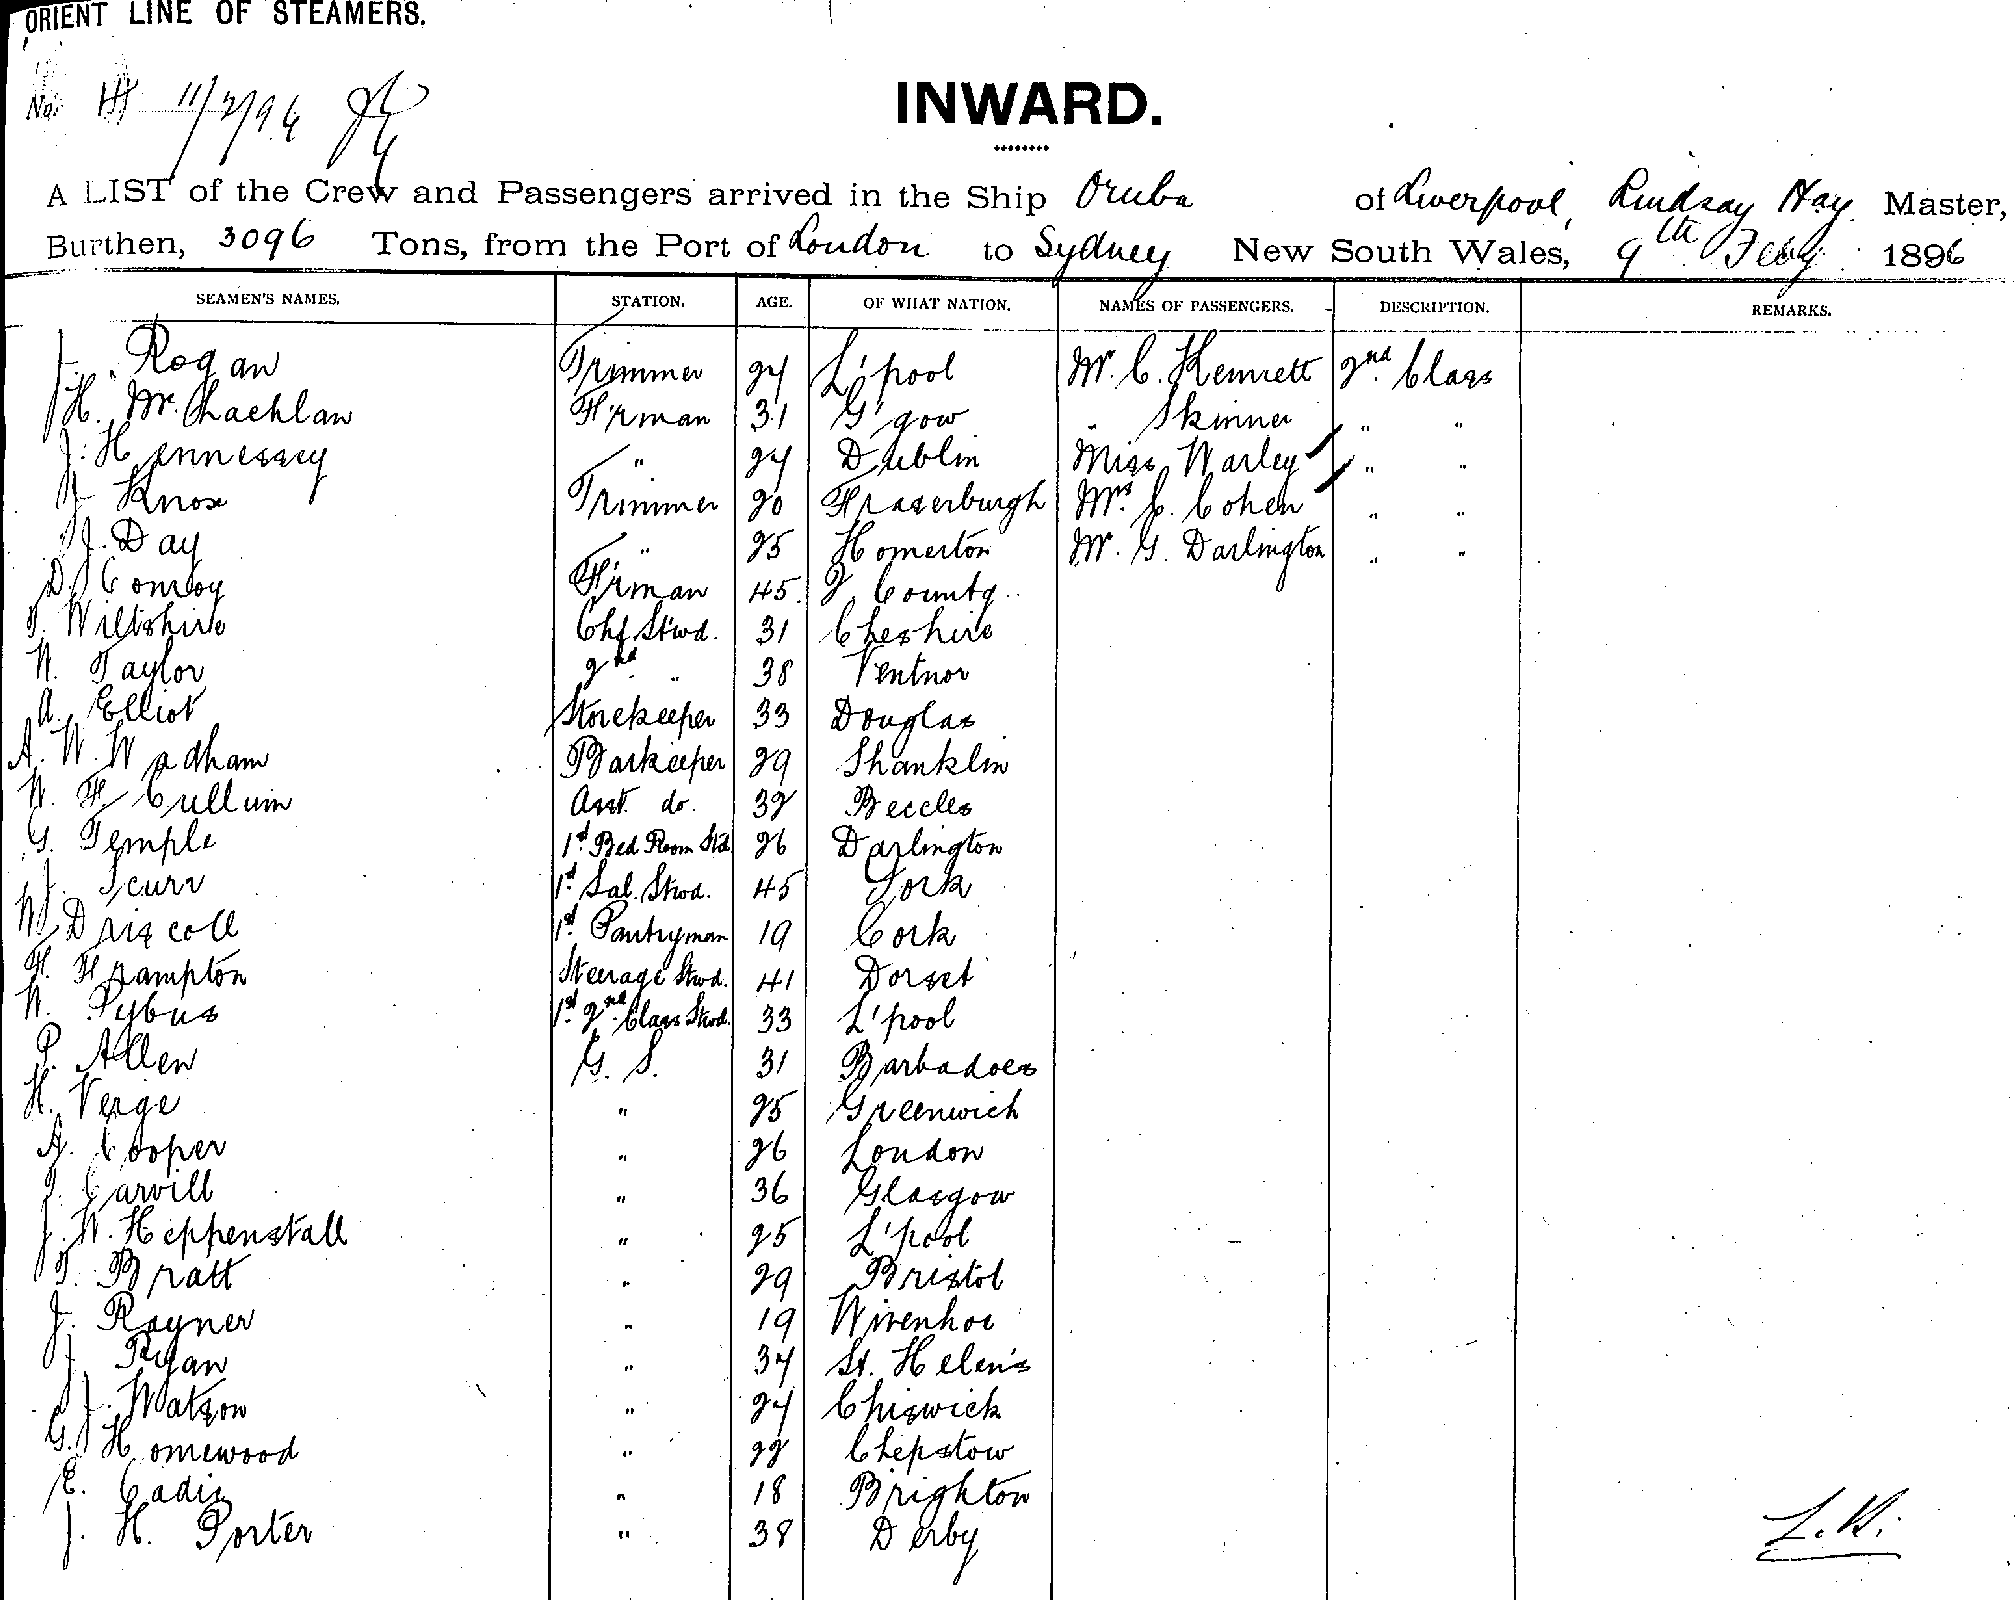 ORIENT LINE OF STEAMERS.
No. 11/2/96
INWARD.
A LIST of the Crew and Passengers arrived in the Ship Oruba of Liverpool, Lindsay Hay Master,
Burthen, 3096 Tons, from the Port of London to Sydney New South Wales, 9th Feby 1896
SEAMEN'S NAMES. STATION. AGE. OF WHAT NATION. NAMES OF PASSENGERS. DESCRIPTION. REMARKS.
J. Rogan Trimmer 24 L'pool Mr. C. Kennett 2nd Class
H. McLachlan F'rman 31 G'gow " Skinner " "
J. Hennessey " 24 Dublin Miss Warley " "
J. Knox Trimmer 20 Fraserburgh Mrs. C. Cohen " "
J. Day " 25 Homerton Mr. G. Darlington " "
D. Conroy F'rman 45 County
T. Wiltshire Chf Stwd. 31 Cheshire
W. Taylor 2nd " 38 Ventnor
A. Elliot Storekeeper 33 Douglas
A. W. Wadham Barkeeper 29 Shanklin
W. F. Cullum Asst. do. 32 Beccles
G. Temple 1st Bed Room Std 26 Darlington
J. Scurr 1st Sal. Stwd. 45 York
W. Driscoll 1st Pantryman 19 Cork
F. Frampton Steerage Stwd. 41 Dorset
W. Pybus 1st 2nd Class Stwd. 33 L'pool
P. Allen G. S. 31 Barbadoes
H. Verge " 25 Greenwich
A. Cooper " 26 London
J. Carvill " 36 Glasgow
J. W. Heppenstall " 25 L'pool
T. Bratt " 29 Bristol
J. Rayner " 19 Wivenhoe
J. Ryan " 34 St. Helen's
J. Watson " 24 Chiswick
G. Homewood " 22 Chepstow
E. Eadie " 18 Brighton
J. H. Porter " 38 Derby
L.H.